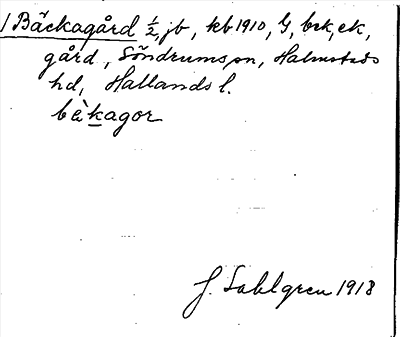 / Bäckagård 1/2, jb, kb 1910, G, brk, ek,
gård, Söndrums sn, Halmstads
hd, Hallands l.
bè̀kagor
J. Sahlgren 1918